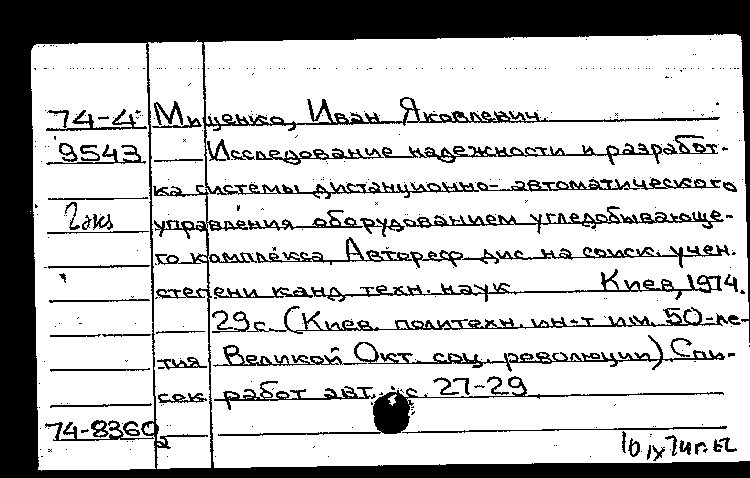 74-4 Мищенко, Иван Яковлевич.
9543 Исследование надежности и разработ-
ка системы дистанционно-автоматического
2 экз управления оборудованием угледобывающе-
го комплекса. Автореф дис. на соиск. учен.
степени канд. техн. наук Киев, 1974.
29с. (Киев. политехн. ин-т им. 50-ле-
тия Великой Окт. соц. революции) Спи-
сок работ авт.: с. 27-29
74-8360
2
10 IX 74г.